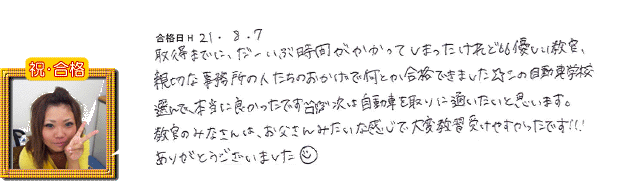 合格日 H 21. 8. 7
取得までに、だーいぶ時間がかかってしまったけれども優しい教官、
親切な事務所の人たちのおかげで何とか合格できました☆この自動車学校
選んで、本当に良かったです 次は自動車を取りに通いたいと思います。
教官のみなさんは、お父さんみたいな感じで大変教習受けやすかったです!!!
ありがとうございました☺
祝・合格